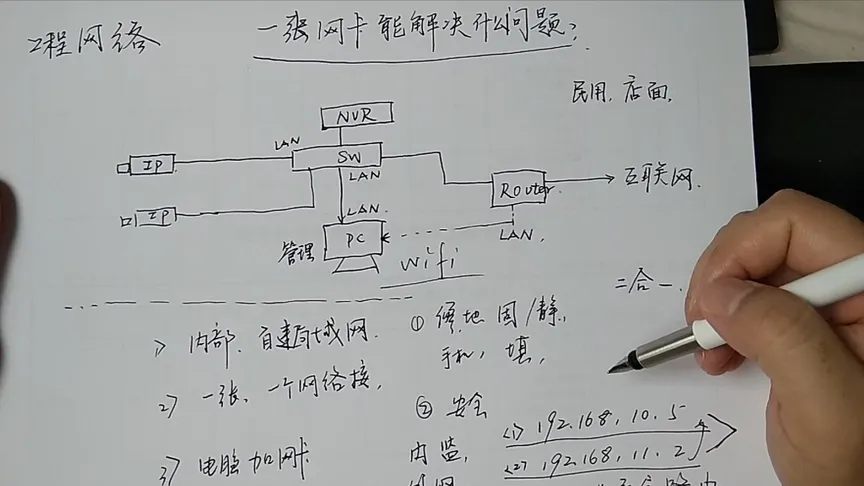 工程网络
一张网卡能解决什么问题？
民用、店面,
NVR
LAN
IP
SW
LAN
Router
互联网.
IP
LAN.
管理
PC
LAN.
wifi
二合一.
1> 内部、自建局域网.
① 固/静,
手机, 填,
2> 一张、一个网络接,
② 安全
<1> 192.168.10.5
内 监,
<2> 192.168.11.2
3> 电脑加网卡